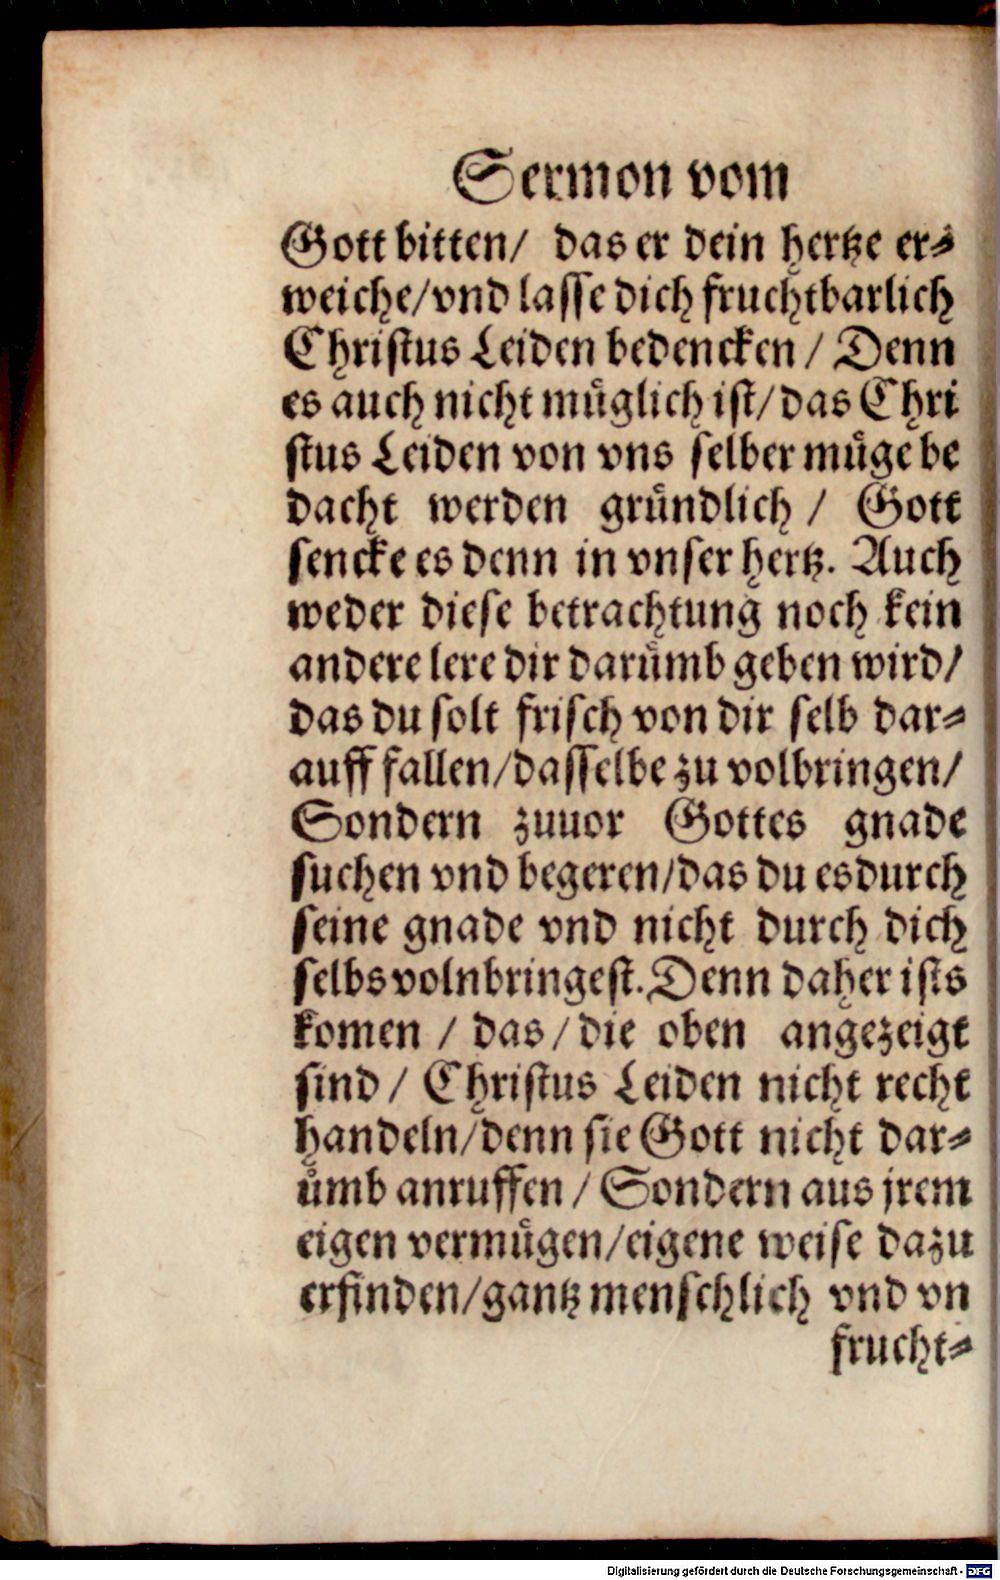 Sermon vom
Gott bitten/ das er dein hertze er⸗
weiche/vnd lasse dich fruchtbarlich
Christus Leiden bedencken / Denn
es auch nicht muͤglich ist/das Chri
stus Leiden von vns selber muͤge be
dacht werden gruͤndlich / Gott
sencke es denn in vnser hertz. Auch
weder diese betrachtung noch kein
andere lere dir daruͤmb geben wird/
das du solt frisch von dir selb dar⸗
auff fallen/dasselbe zu volbringen/
Sondern zuuor Gottes gnade
suchen vnd begeren/das du es durch
seine gnade vnd nicht durch dich
selbs volnbringest. Denn daher ists
komen / das / die oben angezeigt
sind / Christus Leiden nicht recht
handeln/denn sie Gott nicht dar⸗
uͤmb anruffen / Sondern aus jrem
eigen vermuͤgen/eigene weise dazu
erfinden/gantz menschlich vnd vn
frucht⸗
Digitalisierung gefördert durch die Deutsche Forschungsgemeinschaft - DFG